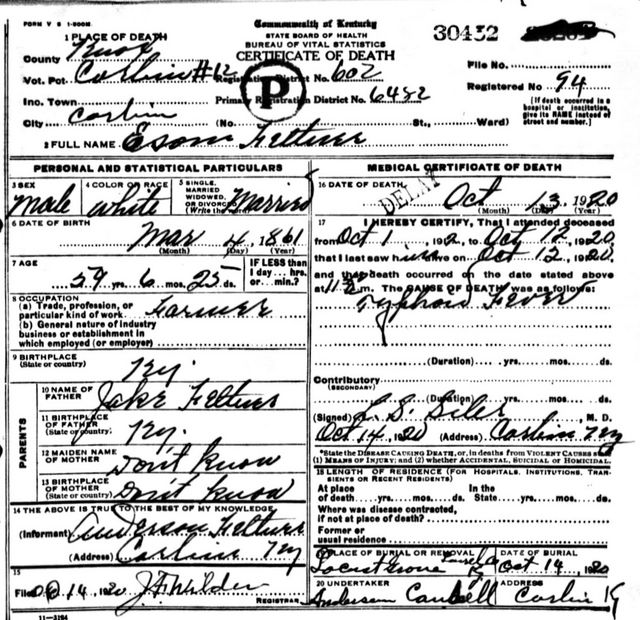 FORM V S 1-500M
Commonwealth of Kentucky
STATE BOARD OF HEALTH
BUREAU OF VITAL STATISTICS
CERTIFICATE OF DEATH
30452
1 PLACE OF DEATH
County Knox
Vot. Pct. Corbin #12 Registration District No. 602
File No.
Inc. Town Primary Registration District No. 6482
P
Registered No. 94
City Corbin (No. St., Ward)
[If death occurred in a hospital or institution, give its NAME instead of street and number.]
2 FULL NAME Esom Feltner
PERSONAL AND STATISTICAL PARTICULARS
3 SEX Male
4 COLOR OR RACE White
5 SINGLE, MARRIED WIDOWED, OR DIVORCED (Write the word) Married
6 DATE OF BIRTH
Mar 4, 1861
(Month) (Day) (Year)
7 AGE
59 yrs. 6 mos. 25 ds.
IF LESS than 1 day... hrs. or... min.?
8 OCCUPATION
(a) Trade, profession, or particular kind of work Farmer
(b) General nature of industry business or establishment in which employed (or employer)
9 BIRTHPLACE
(State or country) Ky.
PARENTS
10 NAME OF FATHER Jake Feltner
11 BIRTHPLACE OF FATHER (State or country) Ky.
12 MAIDEN NAME OF MOTHER Don't Know
13 BIRTHPLACE OF MOTHER (State or country) Don't Know
14 THE ABOVE IS TRUE TO THE BEST OF MY KNOWLEDGE
(Informant) Anderson Feltner
(Address) Corbin Ky
15
Filed Oct 14, 1920 J.F. Wilder
REGISTRAR
11-3194
MEDICAL CERTIFICATE OF DEATH
16 DATE OF DEATH
DELAY
Oct 13 1920
(Month) (Day) (Year)
17 I HEREBY CERTIFY, That I attended deceased
from Oct 1, 1912, to Oct 12, 1920
that I last saw him alive on Oct 12, 1920
and that death occurred on the date stated above
at m. The CAUSE OF DEATH was as follows:
Typhoid Fever
(Duration) yrs. mos. ds.
Contributory
(SECONDARY)
(Duration) yrs. mos. ds.
(Signed) L. S. , M. D.
Oct 14, 1920 (Address) Corbin Ky
*State the DISEASE CAUSING DEATH, or, in deaths from VIOLENT CAUSES state
(1) MEANS OF INJURY; and (2) whether ACCIDENTAL, SUICIDAL or HOMICIDAL.
18 LENGTH OF RESIDENCE (FOR HOSPITALS, INSTITUTIONS, TRANSIENTS OR RECENT RESIDENTS)
At place of death yrs. mos. ds. In the State yrs. mos. ds.
Where was disease contracted, if not at place of death?
Former or usual residence
19 PLACE OF BURIAL OR REMOVAL DATE OF BURIAL
Laurel Co Oct 14, 1920
20 UNDERTAKER ADDRESS
Anderson Corbin Ky